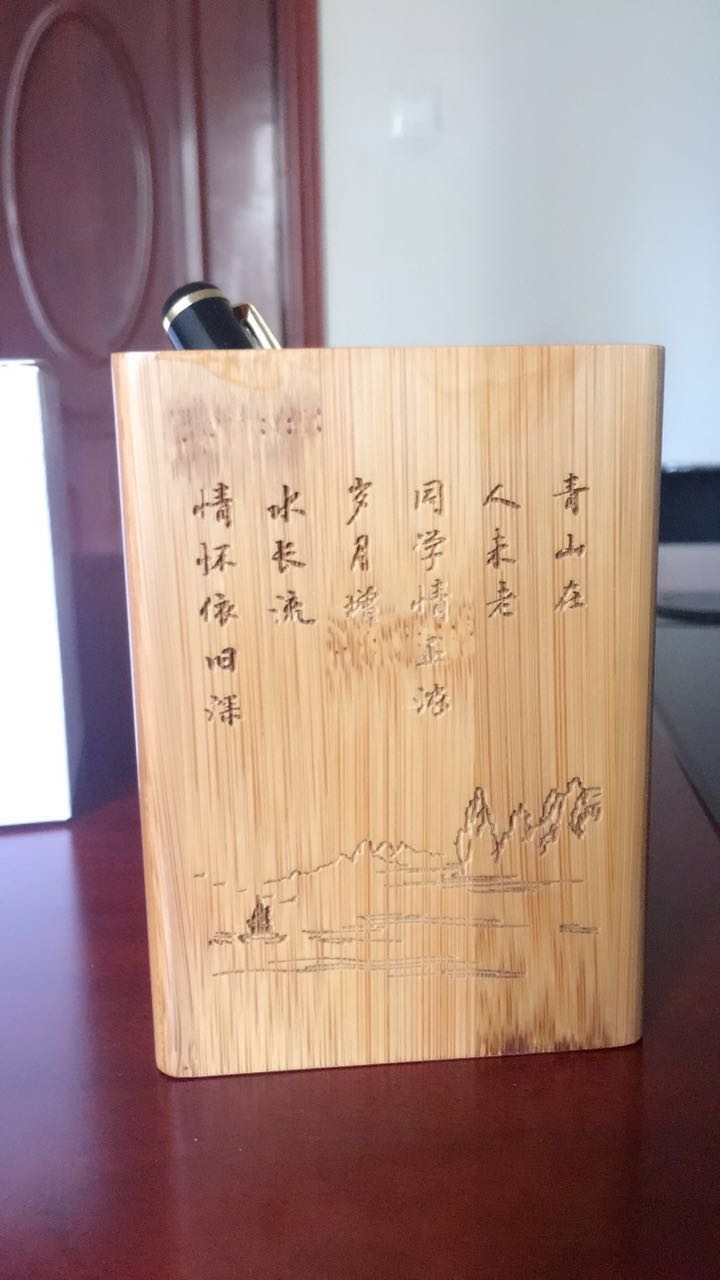 青山在
人未老
同学情正浓
岁月增
水长流
情怀依旧深